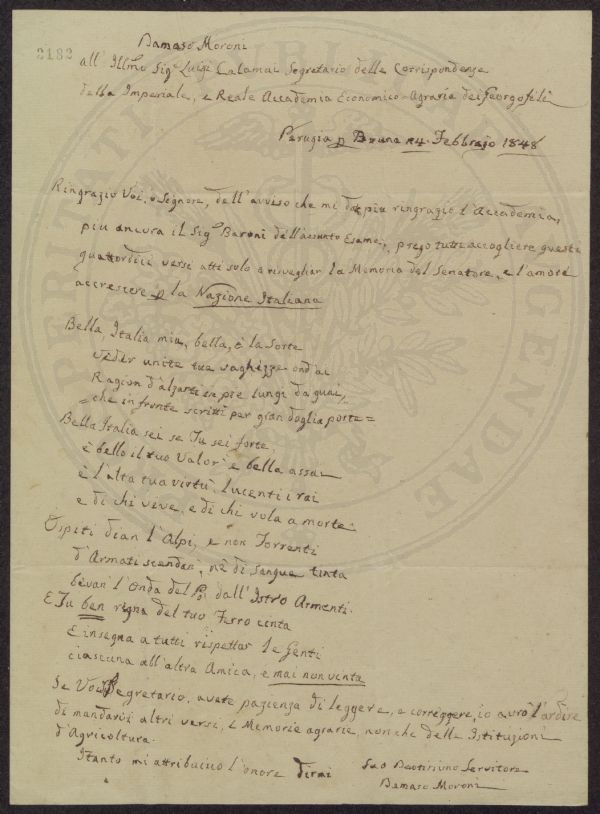 2182
Damaso Moroni
all' Illmo Sigr Luigi Calamai Segretario delle Corrispondenze
della Imperiale, e Reale Accademia Economico-Agraria dei Georgofili
Perugia p Bruna 24 Febbrajo 1848
Ringrazio Voi, o Signore, dell'avviso che mi dà, più ringrazio l'Accademia,
più ancora il Sigr Baroni dell'assunto Esame, prego tutti accogliere queste
quattordici versi atti solo a risvegliar la Memoria del Senatore, e l'amore
accrescere p la Nazione Italiana
Bella, Italia mia, bella, è la Sorte
veder unite tue vaghezze ond'ai
Ragion d'alzarti in piè lungi da guai,
= che in fronte scritti per gran doglia porte =
Bella Italia sei se Tu sei forte,
è bello il tuo Valor e bella assai
è l'alta tua virtù, lucenti i rai
e di chi vive, e di chi vola a morte.
Ospiti dian l'Alpi, e non Torrenti
d'Armati scendan, nè di sangue tinta
bevan l'Onda del Pò dall'Istro Armenti.
E Tu ben regna del tuo Ferro cinta
E insegna a tutti rispettar le Genti
ciascuna all'altra Amica, e mai non vinta
Se Voi Segretario, avete pazienza di leggere, e correggere, io avrò l'ardire
di mandarvi altri versi, e Memorie agrarie, nonche delle Istituzioni
d'Agricoltura.
Itanto mi attribuisco l'onore dirmi
Suo Devotissimo Servitore
Damaso Moroni